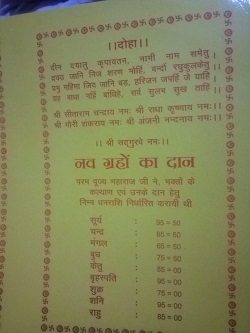 ।।दोहा।।
दीन दयालु कृपायतन, नामी नाम समेतु।
द्रवउ जानि निज शरण मोहि, बन्दौं रघुकुलकेतु।
प्रभु महिमा जिय जानि बड़, हरिजन जपहिं जे याहि
सब साधा नहिं बांधिहै, सर्व सुलभ सुख ताहि
श्री सीताराम चन्द्राय नमः श्री राधा कृष्णाय नमः
श्री गौरी शंकराय नमः श्री अंजनी नन्दनाय नमः
।। श्री सद्गुरवे नमः।।
नव ग्रहों का दान
परम पूज्य महाराज जी ने, भक्तों के
कल्याण एवं उनके दान हेतु
निम्न धनराशि निर्धारित करायी थी
सूर्य : 95=50
चन्द्र : 85=50
मंगल : 65=50
बुध : 75=50
केतु : 65=00
बृहस्पति : 95=00
शुक्र : 75=00
शनि : 95=00
राहु : 85=00